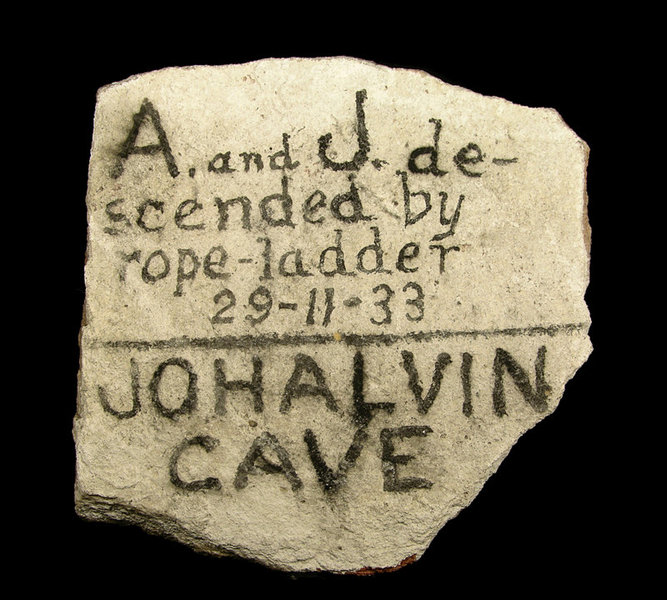 A. and J. de-
scended by
rope-ladder
29-11-33
JOHALVIN
CAVE